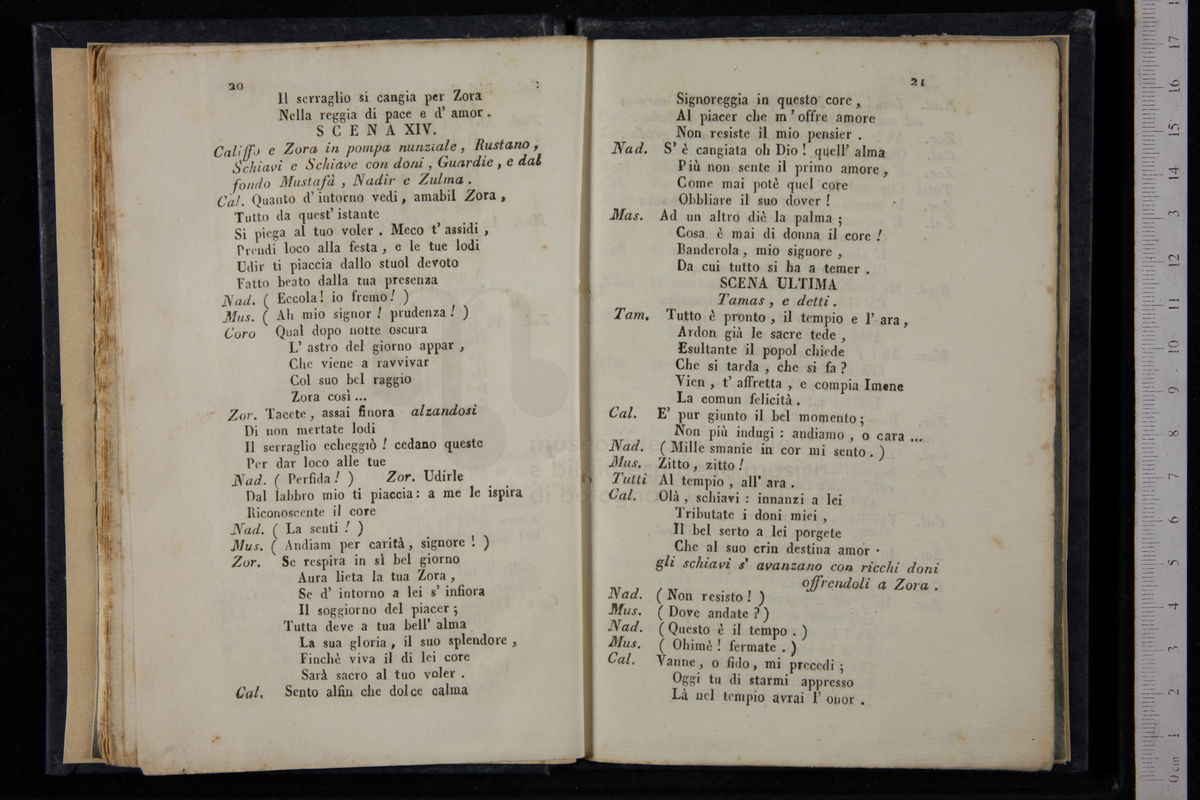 20
Il serraglio si cangia per Zora
Nella reggia di pace e d' amor .
S C E N A XIV.
Califfo e Zora in pompa nunziale , Rustano ,
Schiavi e Schiave con doni , Guardie , e dal
fondo Mustafà , Nadir e Zulma .
Cal. Quanto d' intorno vedi , amabil Zora ,
Tutto da quest' istante
Si piega al tuo voler . Meco t' assidi ,
Prendi loco alla festa , e le tue lodi
Udir ti piaccia dallo stuol devoto
Fatto beato dalla tua presenza
Nad. ( Eccola! io fremo! )
Mus. ( Ah mio signor ! prudenza ! )
Coro Qual dopo notte oscura
L' astro del giorno appar ,
Che viene a ravvivar
Col suo bel raggio
Zora così ...
Zor. Tacete , assai finora alzandosi
Di non mertate lodi
Il serraglio echeggiò ! cedano queste
Per dar loco alle tue
Nad. ( Perfida ! ) Zor. Udirle
Dal labbro mio ti piaccia : a me le ispira
Riconoscente il core
Nad. ( La senti ! )
Mus. ( Andiam per carità , signore ! )
Zor. Se respira in sì bel giorno
Aura lieta la tua Zora ,
Se d' intorno a lei s' infiora
Il soggiorno del piacer ;
Tutta deve a tua bell' alma
La sua gloria , il suo splendore ,
Finchè viva il di lei core
Sarà sacro al tuo voler .
Cal. Sento alfin che dolce calma
21
Signoreggia in questo core ,
Al piacer che m' offre amore
Non resiste il mio pensier .
Nad. S' è cangiata oh Dio ! quell' alma
Più non sente il primo amore ,
Come mai potè quel core
Obbliare il suo dover !
Mas. Ad un altro diè la palma ;
Cosa è mai di donna il core !
Banderola , mio signore ,
Da cui tutto si ha a temer .
SCENA ULTIMA
Tamas , e detti .
Tam. Tutto è pronto , il tempio e l' ara ,
Ardon già le sacre tede ,
Esultante il popol chiede
Che si tarda , che si fa ?
Vien , t' affretta , e compia Imene
La comun felicità .
Cal. E' pur giunto il bel momento ;
Non più indugi : andiamo , o cara ...
Nad. ( Mille smanie in cor mi sento . )
Mus. Zitto , zitto !
Tutti Al tempio , all' ara .
Cal. Olà , schiavi : innanzi a lei
Tributate i doni miei ,
Il bel serto a lei porgete
Che al suo crin destina amor .
gli schiavi s' avanzano con ricchi doni
offrendoli a Zora .
Nad. ( Non resisto ! )
Mus. ( Dove andate ? )
Nad. ( Questo è il tempo . )
Mus. ( Ohimè ! fermate . )
Cal. Vanne , o fido , mi precedi ;
Oggi tu di starmi appresso
Là nel tempio avrai l' onor .